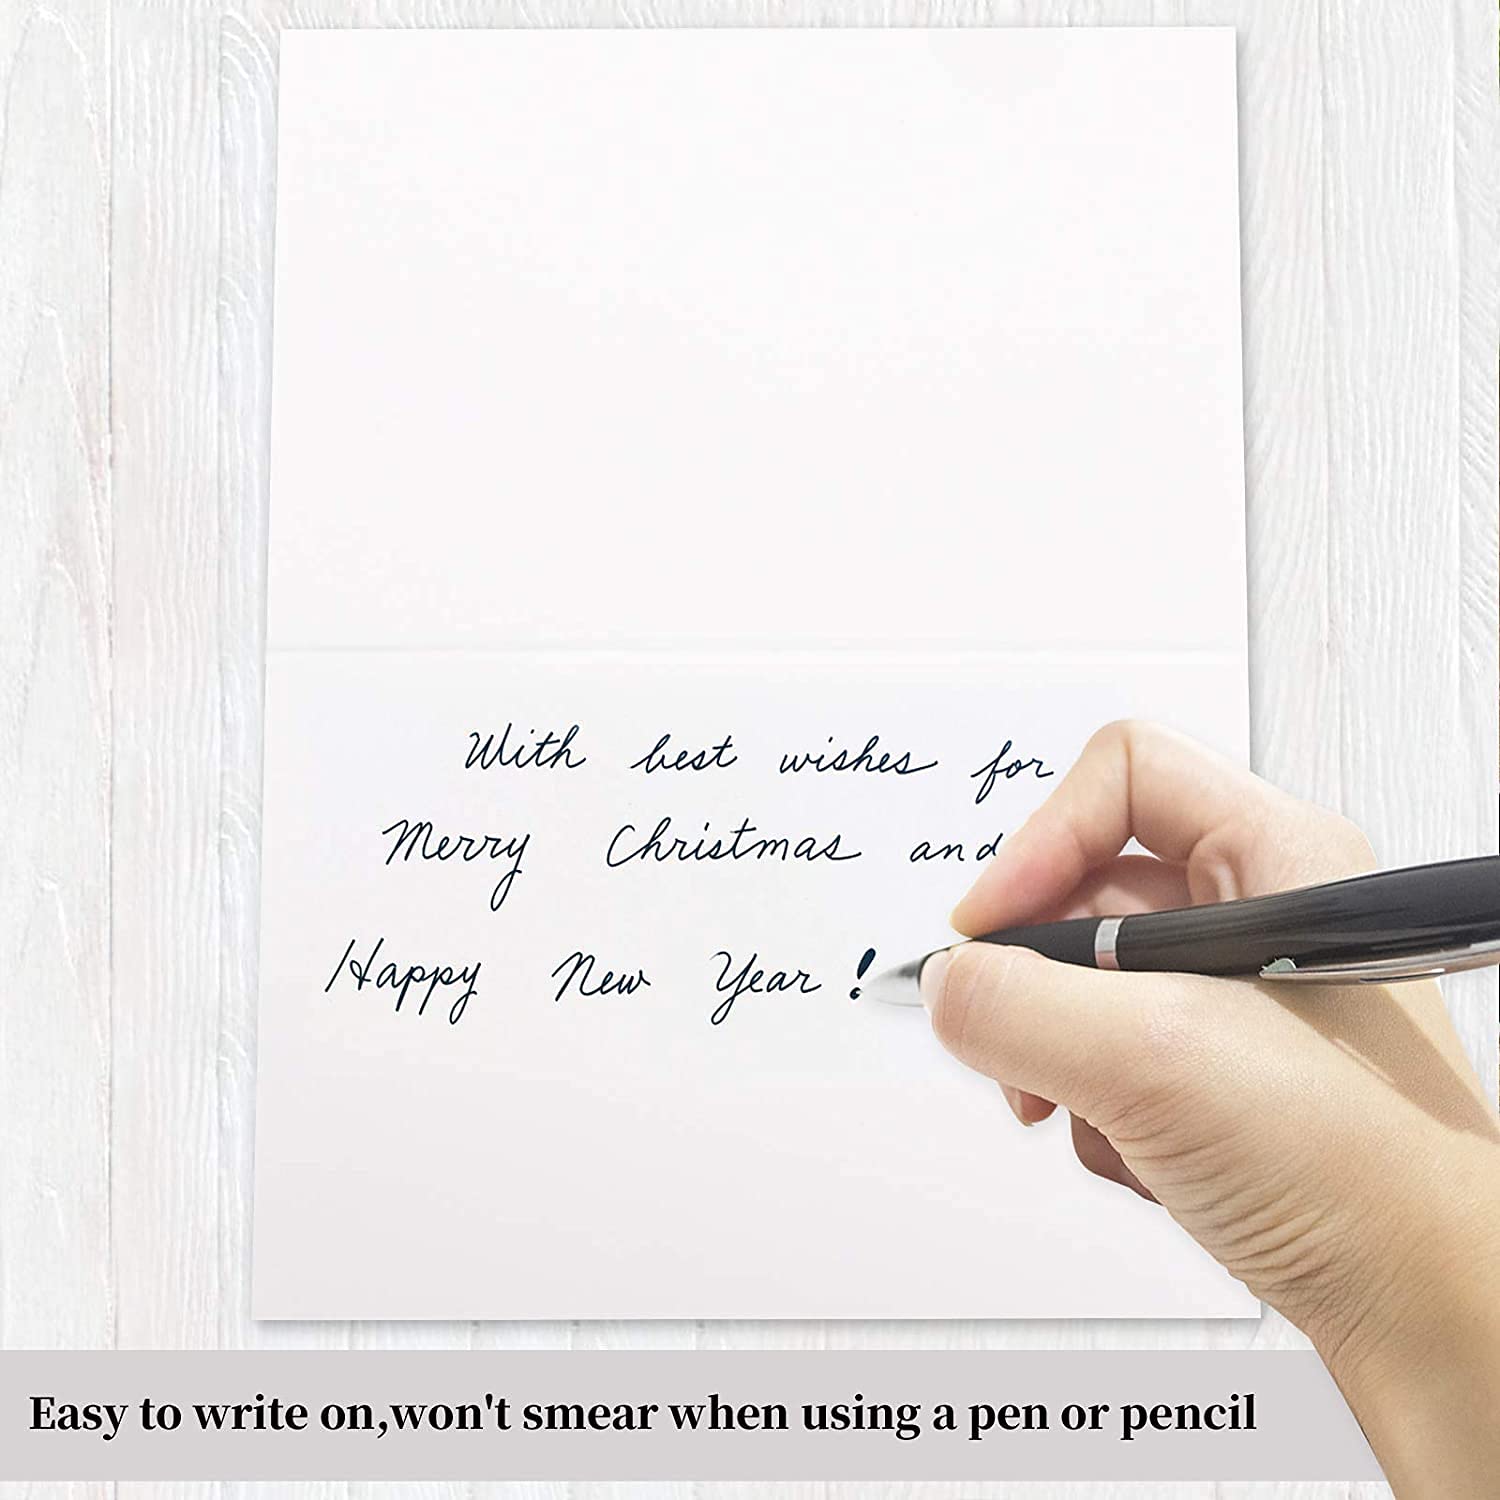 With best wishes for
Merry Christmas and
Happy New Year!
Easy to write on,won't smear when using a pen or pencil